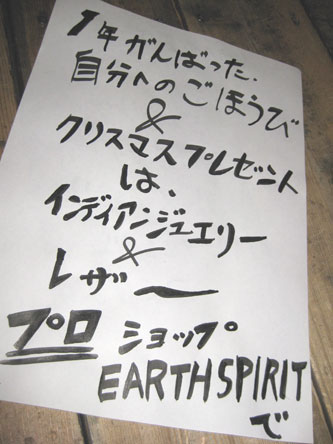 1年がんばった、
自分へのごほうび
&
クリスマスプレゼント
は、
インディアンジュエリー
&
レザー
プロショップ
EARTHSPIRIT
で